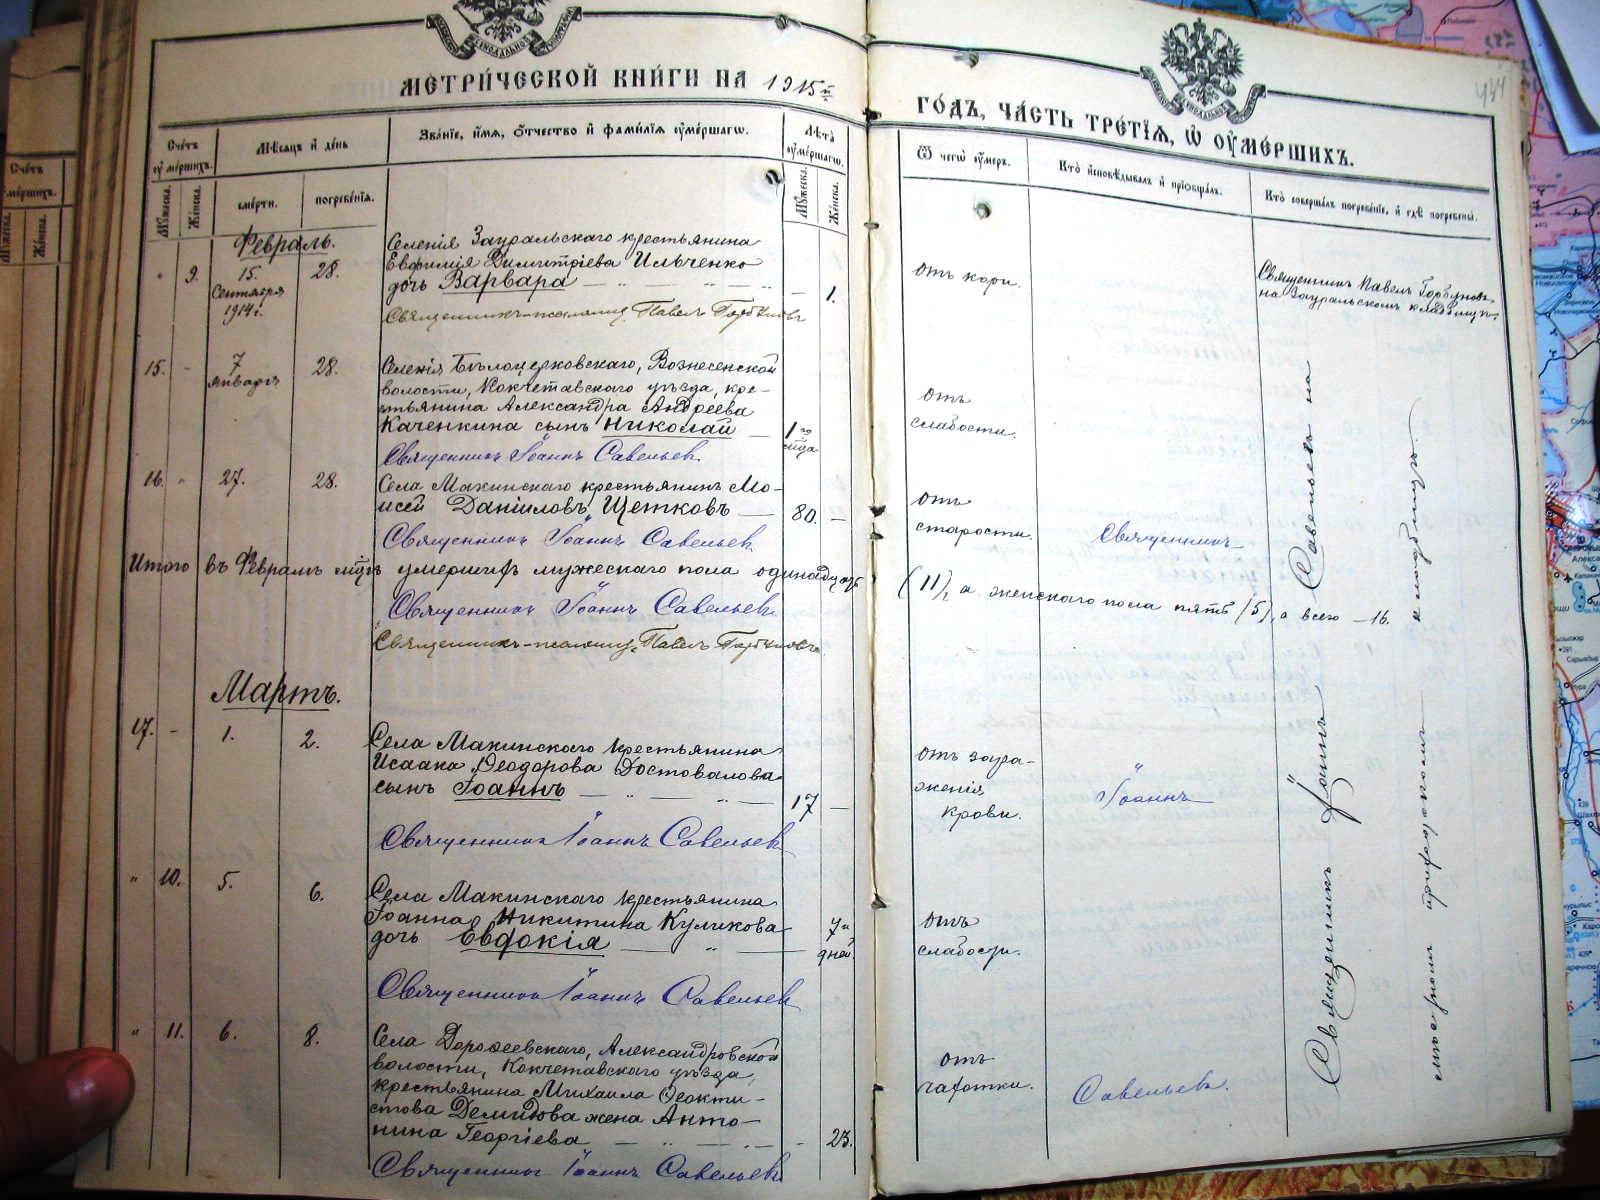 МЕТРИЧЕСКОЙ КНИГИ НА 1915й
ГОДЪ, ЧАСТЬ ТРЕТІЯ, Ѡ ОУМЕРШИХЪ.
Счетъ оумершихъ.
Мѣсяцъ и день
Званіе, имя, отчество и фамилія оумершагѡ.
Лѣта оумершагѡ.
Ѿ чегѡ оумеръ.
Кто исповѣдывалъ и пріобщалъ.
Кто совершалъ погребеніе, и гдѣ погребены.
Мужеска.
Женска.
смерти.
погребенія.
Мужеска.
Женска.
Февраль.
" 9. 15. Сентября 1914 г. 28.
Селенія Зауральскаго крестьянина
Евфимія Димитріева Ильченко
дочь Варвара — 1.
отъ кори.
Священникъ Павелъ Горбуновъ
на Зауральскомъ кладбищѣ.
Священникъ Павелъ Горбуновъ
15. - 7 января 28.
Селенія Бѣлоцерковскаго, Вознесенской
волости, Кокчетавского уѣзда, кре-
стьянина Александра Андреева
Каченкина сынъ Николай — 1го мѣца
отъ
слабости.
Священникъ Іоаннъ Савельевъ
16. " 27. 28.
Села Макинскаго крестьянинъ Мо-
исей Даніиловъ Щетковъ — 80. —
отъ
старости.
Священникъ
Священникъ Іоаннъ Савельевъ
Итого въ Февралѣ мцѣ умершихъ мужескаго пола одинадцать
(11), а женскаго пола пять (5), а всего —16.
Священникъ Іоаннъ Савельевъ
Священникъ Павелъ Горбуновъ
Мартъ.
17. - 1. 2.
Села Макинскаго крестьянина
Исаака Ѳеодорова Достовалова
сынъ Іоаннъ — 17 —
отъ зара-
женія
крови.
Іоаннъ
Священникъ Іоаннъ Савельевъ
" 10. 5. 6.
Села Макинскаго крестьянина
Іоанна Никитина Куликова
дочь Евдокія — 7и дней.
отъ
слабости.
Священникъ Іоаннъ Савельевъ
" 11. 6. 8.
Села Дороѳеевскаго, Александровской
волости, Кокчетавскаго уѣзда,
крестьянина Михаила Ѳеокти-
стова Демидова жена Анто-
нина Георгіева — 23.
отъ
чахотки.
Савельевъ
Священникъ Іоаннъ Савельевъ
Священникъ Іоаннъ Савельевъ на
приходскомъ кладбищѣ.
Счетъ
умершихъ.
Мужеска.
Женска.